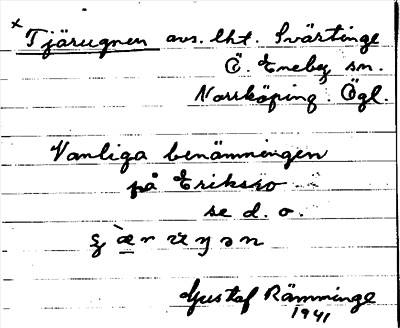 × Tjärugnen avs. lht. Svärtinge
Ö. Eneby sn.
Norrköping. Ögl.
Vanliga benämningen
på Eriksro
se d. o.
Gustaf Rämminge
1941